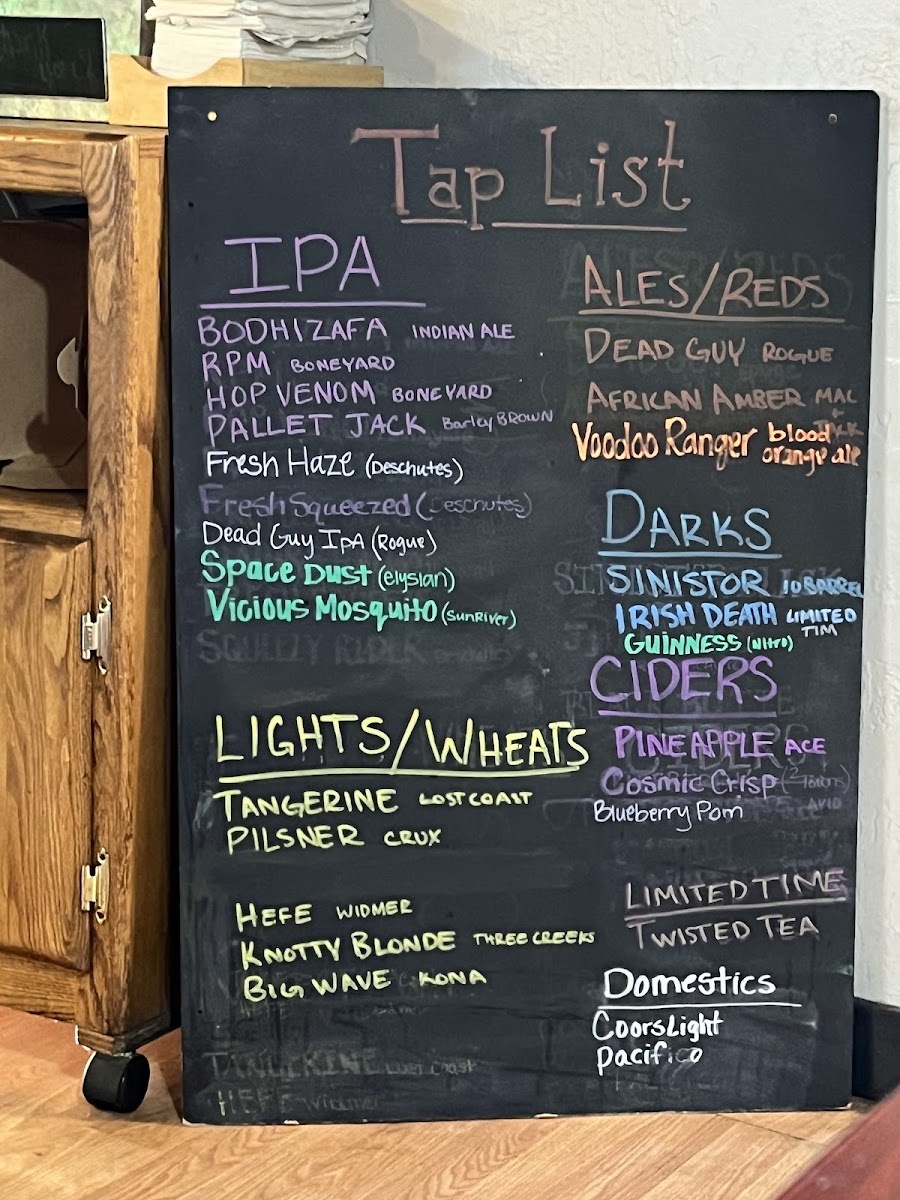 Tap List
IPA
BODHIZAFA INDIAN ALE
RPM BONEYARD
HOP VENOM BONEYARD
PALLET JACK Barley BROWN
Fresh Haze (Deschutes)
Fresh Squeezed (Deschutes)
Dead Guy IPA (Rogue)
Space Dust (elysian)
Vicious Mosquito (SunRiver)
SQUEEZY RIDER
LIGHTS/WHEATS
TANGERINE LOST COAST
PILSNER CRUX
HEFE WIDMER
KNOTTY BLONDE THREE CREEKS
BIG WAVE KONA
TANGERINE Lost Coast
HEFE Widmer
ALES/REDS
DEAD GUY ROGUE
AFRICAN AMBER MAC
& JACK
Voodoo Ranger blood
orange ale
DARKS
SINISTOR 10 BARREL
IRISH DEATH LIMITED
TIM
GUINNESS (Nitro)
CIDERS
PINEAPPLE ACE
Cosmic Crisp (2 Towns)
Blueberry Pom AVID
LIMITED TIME
TWISTED TEA
Domestics
Coors Light
Pacifico